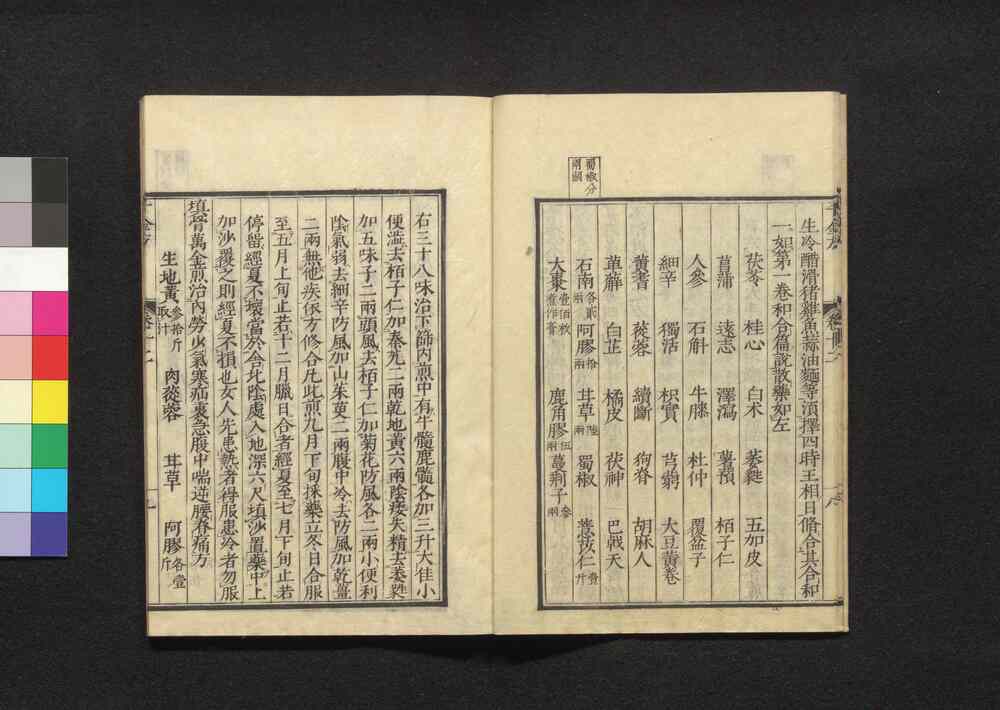 蜀椒分
兩闕
生冷醋滑猪雞魚蒜油麵等湏擇四時王相日脩合其合和
一如第一卷和合篇說散藥如左
茯苓 桂心 白朮 萎蕤 五加皮
菖蒲 遠志 澤瀉 薯預 栢子仁
人參 石斛 牛膝 杜仲 覆盆子
細辛 獨活 枳實 芎藭 大豆黃卷
黃耆 蓯蓉 續斷 狗脊 胡麻人
萆薢 白芷 橘皮 茯神 巴戟天
石南各貳兩 阿膠拾兩 茸草陸兩 蜀椒 薏苡仁壹斤
大棗壹佰枚煮作膏 鹿角膠伍兩 蔓荊子參兩
右三十八味治下篩內煎中有牛髓鹿髓各加三升大徃小
便澁去栢子仁加秦艽二兩乾地黃六兩陰痿失精去萎蕤
加五味子二兩頭風去栢子仁加菊花防風各二兩小便利
陰氣弱去細辛防風加山茱萸二兩腹中冷去防風加乾薑
二兩無他疾依方修合凡此煎九月下旬採藥立冬日合服
至五月上旬止若十二月臘日合者經夏至七月下旬止若
停留經夏不壞當於舍北陰處入地深六尺填沙置藥中上
加沙覆之則經夏不損也女人先患熱者得服患冷者勿服
填骨萬金煎治內勞少氣寒疝裏急腹中喘逆腰脊痛方
生地黃參拾斤取汁 肉蓯蓉 茸草 阿膠各壹斤